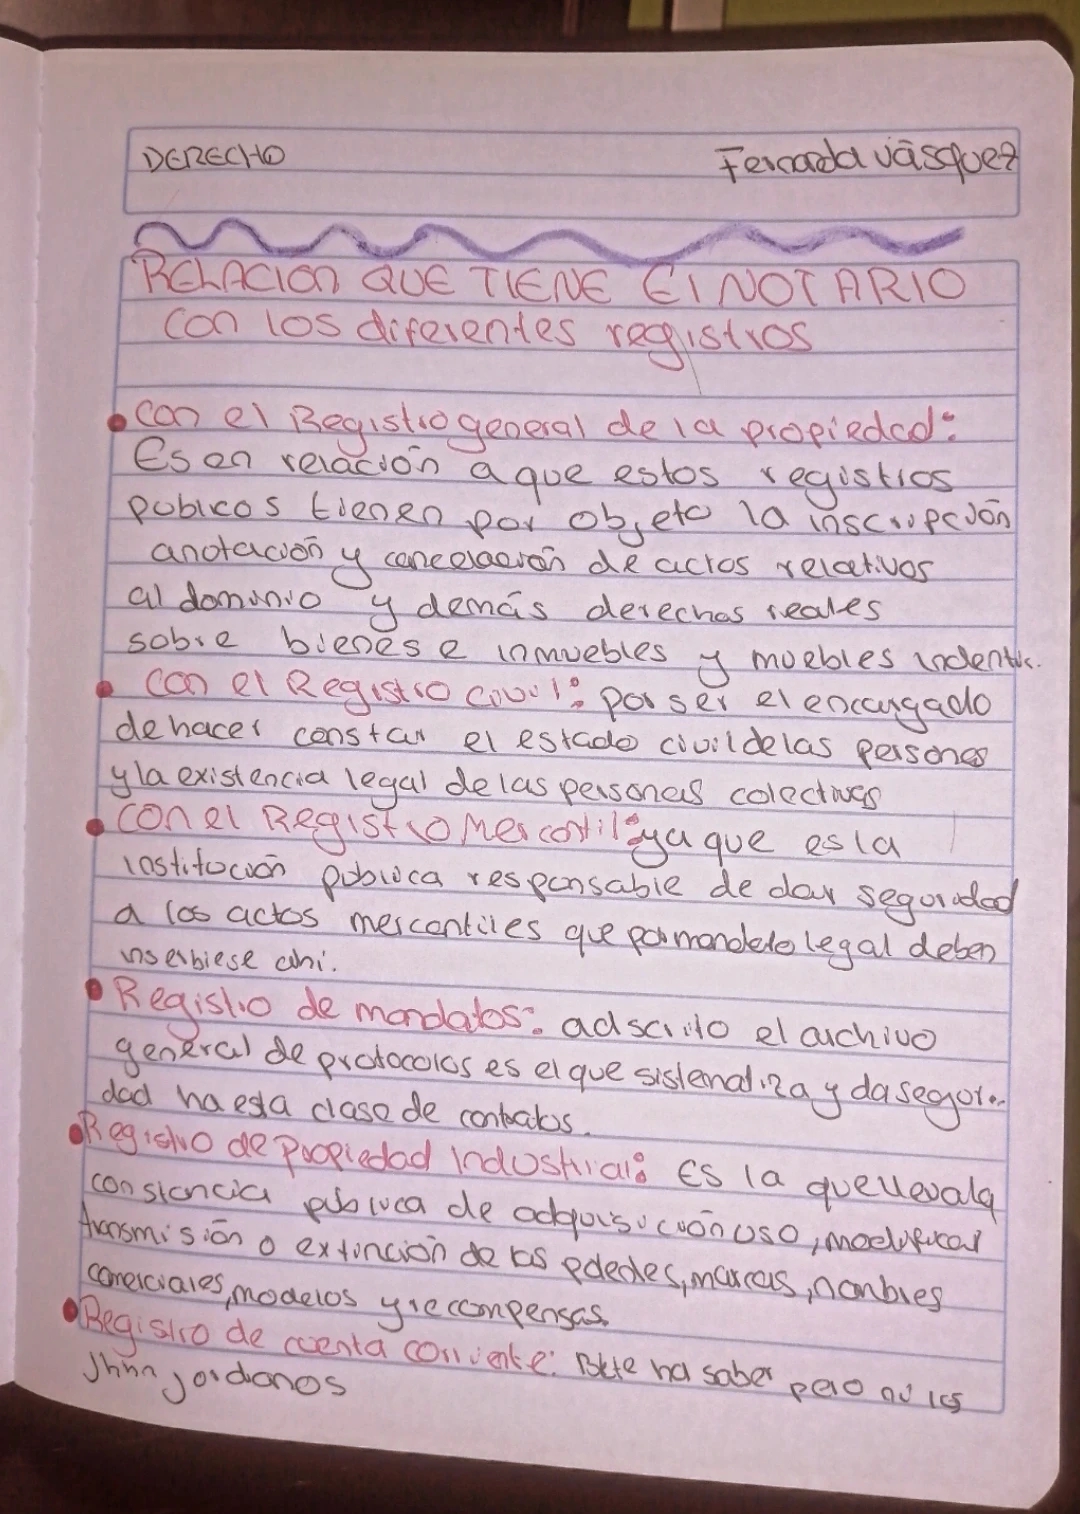 DERECHO
Fernanda Vásquez
RELACION QUE TIENE El NOTARIO
con los diferentes registros
• Con el Registro general de la propiedad:
Es en relación a que estos registros
publicos tienen por objeto la inscripción
anotación y cancelación de actos relativos
al dominio y demás derechos reales
sobre bienes e inmuebles y muebles indentic.
• Con el Registro civil: por ser el encargado
de hacer constar el estado civil de las personas
y la existencia legal de las personas colectivas
• Con el Registro Mercantil: ya que es la
institución publica responsable de dar seguridad
a los actos mercantiles que por mandato legal deben
ahi.
• Registro de mandatos: adscrito el archivo
general de protocolos es el que sistematiza y da seguri.
dad ha esta clase de contratos.
• Registro de Propiedad Industrial: Es la que lleva la
constancia publica de adquisición uso, modificar
transmisión o extinción de las marcas, nombres
comerciales, modelos y recompensas.
• Registro de cuenta corriente: ha saber pero